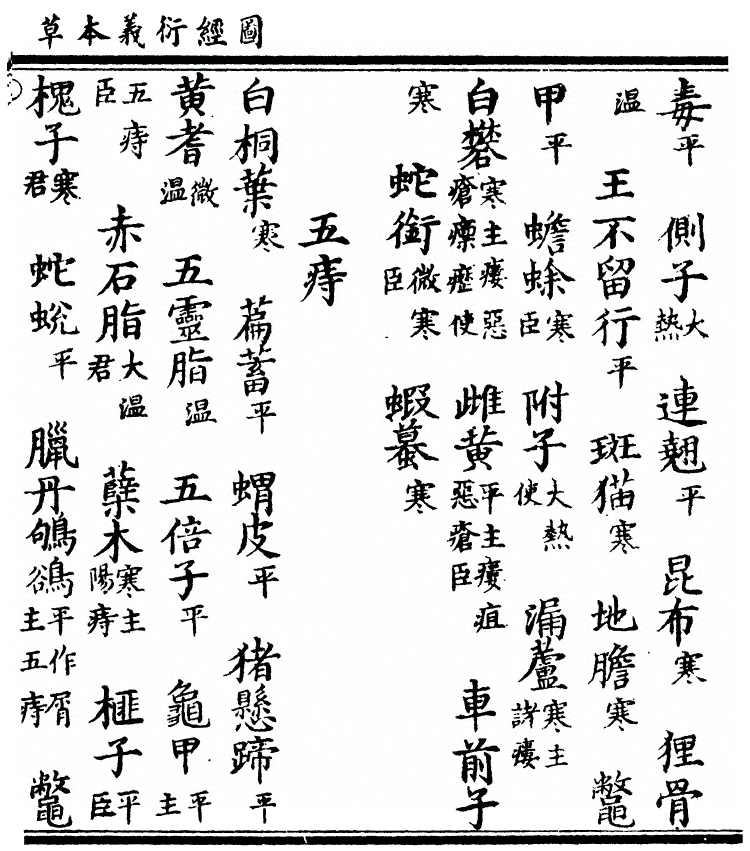 圖經衍義本草
毒平 側子大熱 連翹平 昆布寒 狸骨
溫 王不留行平 斑猫寒 地膽寒 鼈
甲平 蟾蜍寒臣 附子大熱使 漏蘆寒主諸瘻
白礬寒主瘻惡瘡瘰癧使 雌黄平主瘻疽惡瘡臣 車前子
寒 蛇銜微寒臣 蝦蟇寒
五痔
白桐葉寒 萹蓄平 蝟皮平 猪懸蹄平
黄耆微温 五靈脂温 五倍子平 龜甲平主
五痔臣 赤石脂大温君 蘗木寒主陽痔 榧子平臣
槐子寒君 蛇蛻平 臘丹鴝鵒平作屑主五痔 鼈